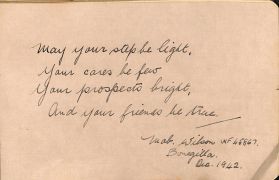 May your step be light,
Your cares be few
Your prospects bright,
And your friends be true.
Mab. Wilson WF45567.
Bonegilla.
Dec. 1942.